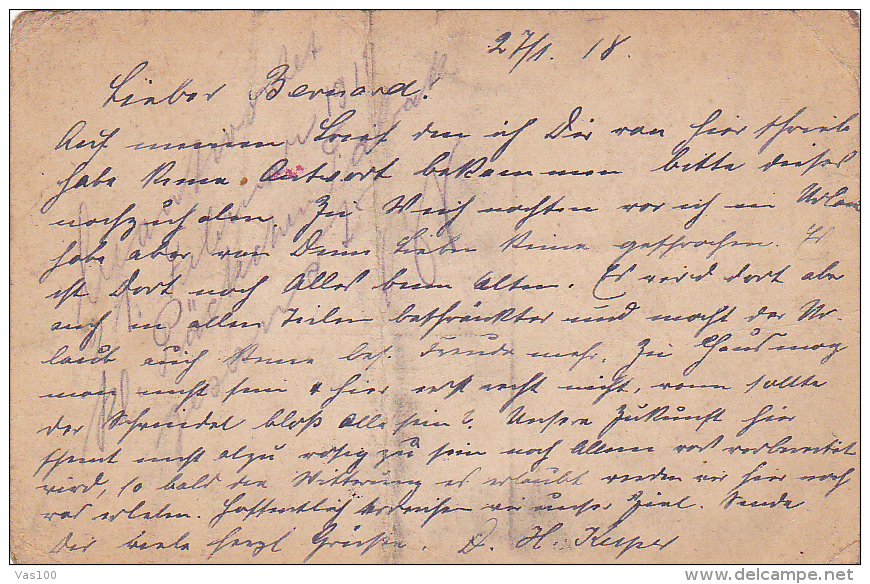 27/1. 18.
Lieber Bernard!
Auf meinen Brief den ich Dir von hier schrieb
habe keine Antwort bekommen bitte dieses
nachzuholen. Zu Weihnachten war ich in Urlaub
habe aber von Deinen Lieben keine gesprochen. Es
ist dort noch Alles beim Alten. Es wird dort aber
auch in allen Teilen beschränkter und macht der Ur-
laub auch keine bes. Freude mehr. Zu Haus mag
man nicht sein & hier erst recht nicht, wann sollte
der Schwindel bloß alle sein? Unsere Zukunft hier
scheint nicht alzu rosig zu sein nach Allem was vorbereitet
wird, so bald die Witterung es erlaubt werden wir hier noch
was erleben. Hoffentlich erreichen wir unser Ziel. Sende
Dir viele herzl Grüße. D. H. Kesper
Vas100
http://www.delcampe.net